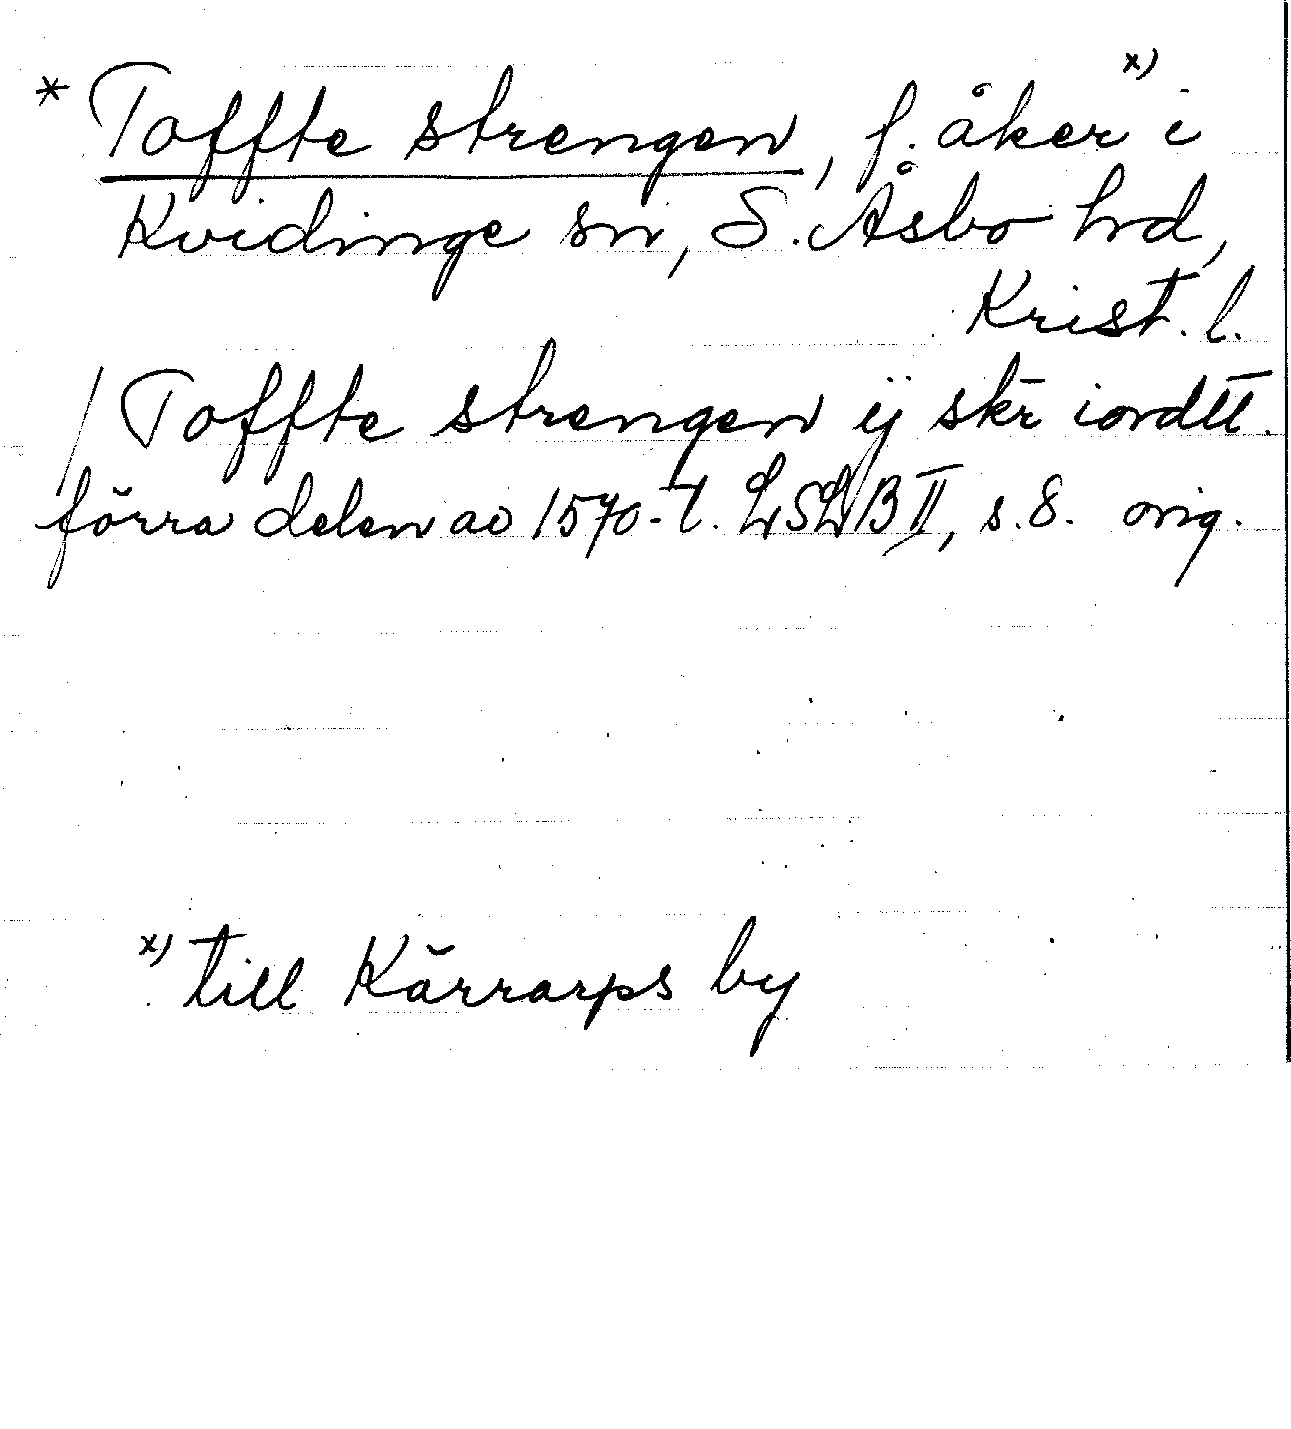 * Toffte strengen, f. åker x) i
Kvidinge sn, S. Åsbo hrd,
Krist. l.
/ Toffte strengen ij skr iordtt.
förra delen av 1570-t. LSLB II, s. 8. orig.
x) till Kärrarps by